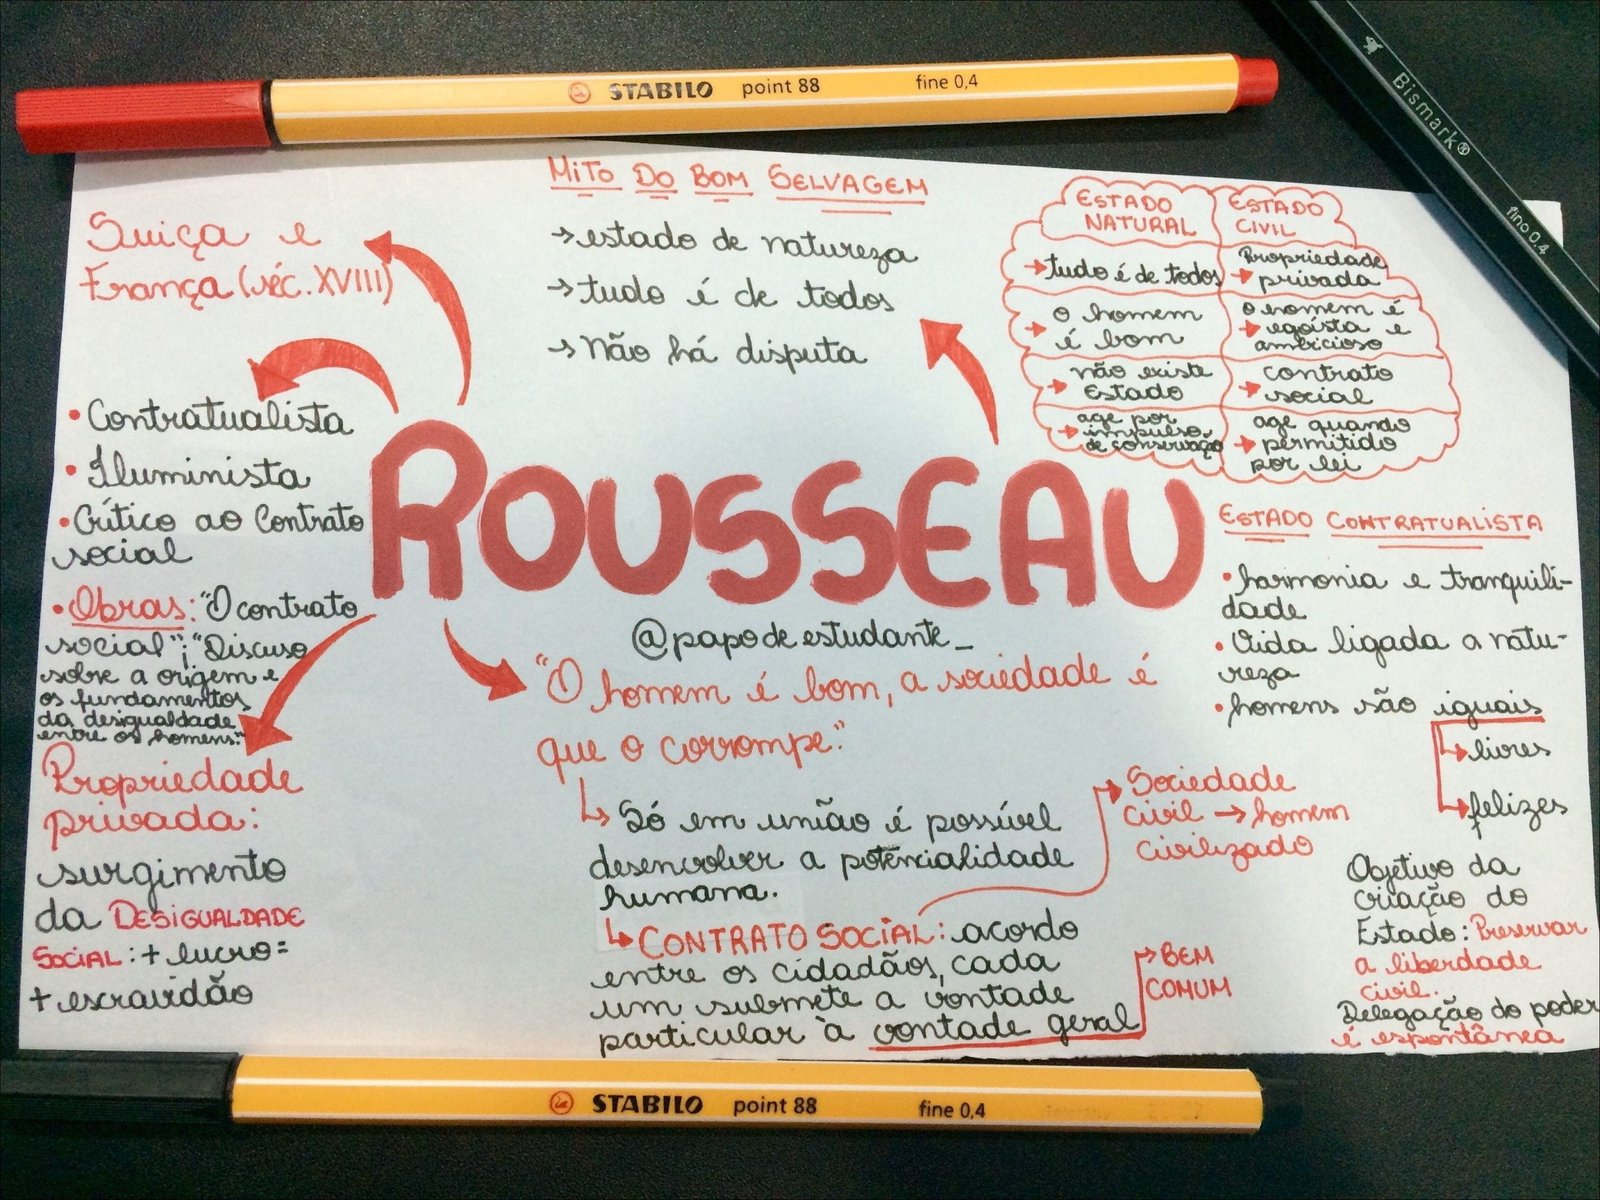 STABILO point 88 fine 0,4
Bismark®
fine 0.4
MITO DO BOM SELVAGEM
→ estado de natureza
→ tudo é de todos
→ Não há disputa
ESTADO NATURAL
→ tudo é de todos
→ o homem é bom
→ não existe Estado
→ age por impulso de conservação
ESTADO CIVIL
→ Propriedade privada
→ o homem é egoísta e ambicioso
→ contrato social
→ age quando permitido por lei
Suiça e
França (séc. XVIII)
• Contratualista
• Iluminista
• Crítico ao Contrato
social
• Obras: "O contrato
social"; "Discuso
sobre a origem e
os fundamentos
da desigualdade
entre os homens."
ROUSSEAU
@papodeestudante_
Propriedade
privada:
surgimento
da DESIGUALDADE
SOCIAL: + lucro =
+ escravidão
"O homem é bom, a sociedade é
que o corrompe."
Só em união é possível
desenvolver a potencialidade
humana.
CONTRATO SOCIAL: acordo
entre os cidadãos, cada
um submete a vontade
particular à vontade geral
BEM
COMUM
Sociedade
civil → homem
civilizado
ESTADO CONTRATUALISTA
• harmonia e tranquili-
dade
• Vida ligada a natu-
reza
• homens são iguais
livres
felizes
Objetivo da
criação do
Estado: Preservar
a liberdade
civil.
Delegação do poder
é espontânea
STABILO point 88 fine 0,4